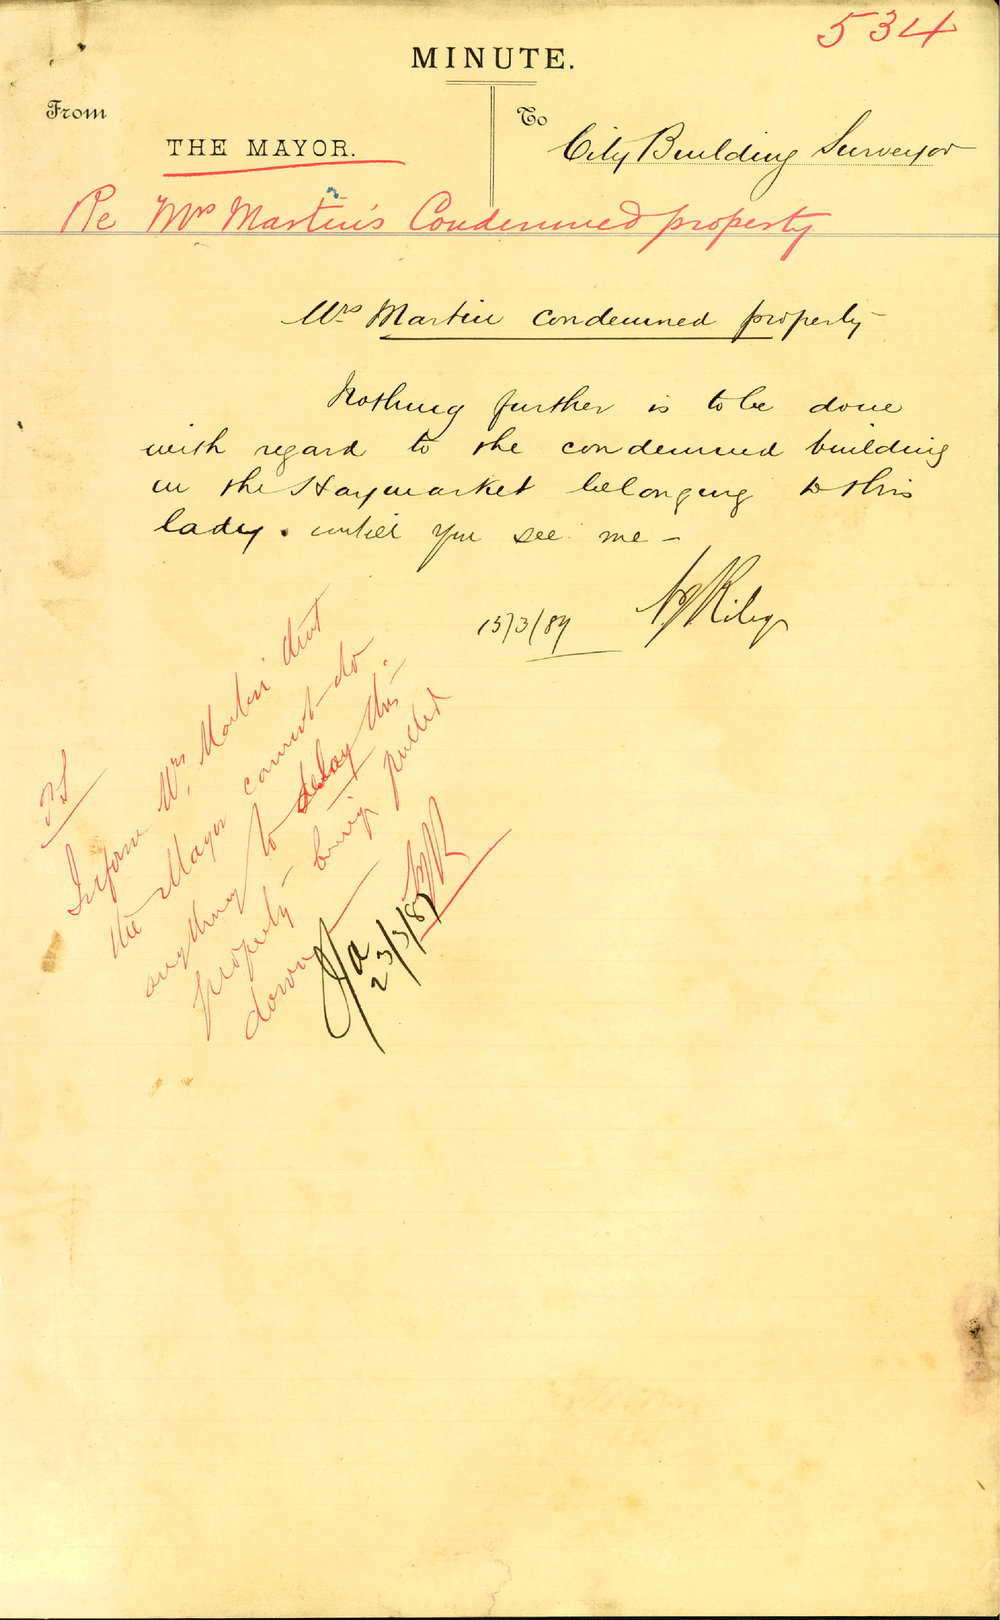 534
MINUTE.
From
To
THE MAYOR.
City Building Surveyor
Re Mrs Martin's Condemned property
Mrs Martin condemned property
Nothing further is to be done
with regard to the condemned building
in the Haymarket belonging to this
lady. until you see me –
15/3/87 Riley
TS
Inform Mrs Martin that
the Mayor cannot do
anything to delay this
property being pulled
down
23/3/87